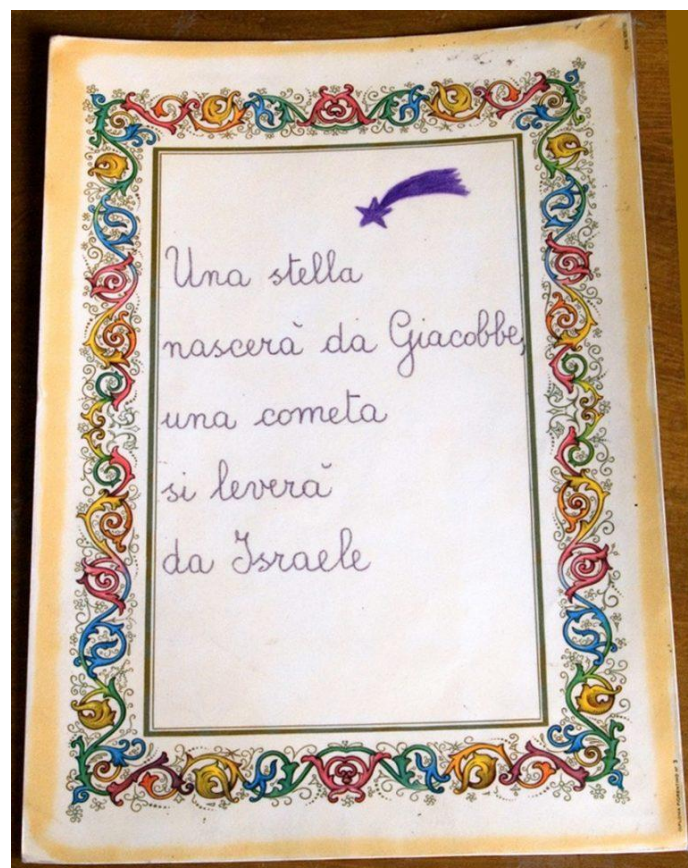 Una stella
nascerà da Giacobbe,
una cometa
si leverà
da Israele